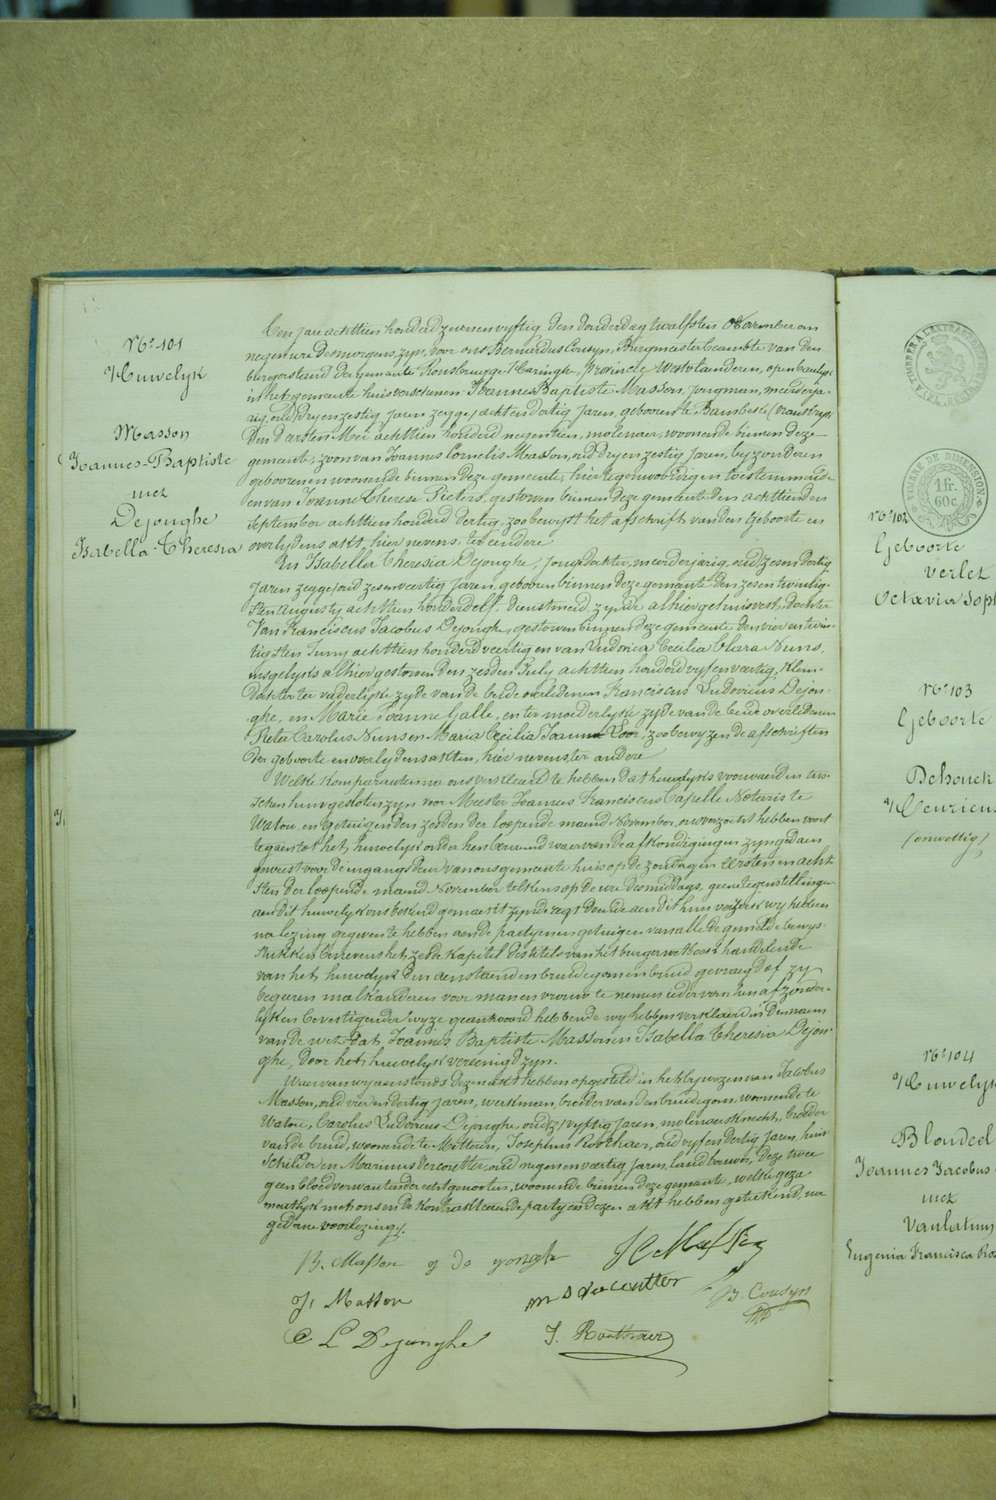 N° 101
Huwelyk
Masson
Joannes-Baptiste
met
Dejonghe
Isabella-Theresia
Een jare achttien honderd zevenenvyftig, den donderdag twalfsten November om
negen ure desmorgens, zyn, voor ons Bernardus Cousyn, Burgmeester beambte van den
burgerstand der gemeente Rousbrugge-Haringhe, Provincie Westvlanderen, openbaarlyk
in het gemeente huis verschenen Joannes Baptiste Masson, jongman, meerderja-
rig, oud dryenzestig jaren zegge, achtendertig jaren, geboren te Bambeke (vrankryk)
den d'ersten Mei achttien honderd negentien, molenaer, woonende binnen deze
gemeente, zoon van Joannes Cornelis Masson, oud dryenzestig jaren, byzonderen
geboren en woonende binnen deze gemeente, hier tegenwoordig en toestemmende
en van Joanne Therese Pieters, gestorven binnen deze gemeente den achttienden
September achttien honderd dertig, zoo bewyst het afschrift van den geboorte en
overlydens akt, hier nevens, ter eendere
En Isabella Theresia Dejonghe, jongdochter, meerderjarig, oud zesendertig
jaren zegge oud zesenveertig jaren, geboren binnen deze gemeente den zesentwintig-
sten Augusty achttien honderd elf, dienstmeid, zynde alhier gehuisvest, dochter
Van Franciscus Jacobus Dejonghe, gestorven binnen deze gemeente den vierentwin-
tigsten Juny achttien honderd veertig en van Ludovica Cecilia Clara Nuns,
insgelyks alhier gestorven den zesden July achttien honderd vyfenveertig, klein-
dochter ter vaderlyke zyde van de beide overledenen Franciscus Ludovicus Dejon-
ghe, en Marie Joanne Galle, en ter moederlyke zyde van de beide overledenen
Pieter Carolus Nuns en Maria Cecilia Joanna Loor, zoo bewyzen de afschriften
der geboorte en overlydens akten, hier nevens ter andere
Welke komparanten ons verklaerd te hebben dat huwelyks voorwaerden tus-
schen hun gesloten zyn voor Meester Joannes Franciscus Capelle Notaris te
Watou, en getuigen den zesden der loopende maend November, ons verzocht hebben voort
te gaen tot het huwelyk onder hen beraemd waervan de afkondigingen zyn gedaen
geweest voor de ingangsdeur van ons gemeente huis op de zondagen eersten en acht-
sten der loopende maend November telkens op de ure des middags, geene tegenstellingen
aen dit huwelyk ons bekend gemaekt zynde regt doende aen dit hun verzoek wy hebben
na lezing gegeven te hebben aen de partyen en getuigen van alle de gemelde bewys-
stukken benevens het zesde kapitel des titels van het burger wetboek handelende
van het huwelyk den aenstaenden bruidegom en bruid gevraegd of zy
begeeren malkanderen voor man en vrouw te nemen ieder van hun afzonder-
lyk en bevestigender wyze geantwoord hebbende wy hebben verklaerd in den naem
van de wet dat Joannes Baptiste Masson en Isabella Theresia Dejon-
ghe, door het huwelyk vereenigd zyn.
Waervan wy aenstonds dezen akt hebben opgesteld in het bywezen van Jacobus
Masson, oud vierendertig jaren, werkman, broeder van den bruidegom, woonende te
Watou, Carolus Ludovicus Dejonghe, oud vyftig jaren, molenaersknecht, broeder
van de bruid, woonende te Josephus Roethaer, oud vyfendertig jaren, huis
schilder en Marinus Decoutter, oud negenenveertig jaren, landbouwer, deze twee
geen bloedverwanten der echtgenooten, woonende binnen deze gemeente, welke geza-
mentlyk met ons en de kontrakteerende partyen dezen akt hebben geteekend, na
gedane voorlezing.
B. Masson
J. Masson
C L Dejonghe
de yongh
m D decoutter
J. Roethaer
B. Cousyn
TIMBRE DE DIMENSION.
1 fr.
60 c.
N° 102
Geboorte
Verlet
Octavia Soph
N° 103
Geboorte
Dehouck
Henricus
(onwettig)
N° 104
Huwelyk
Blondeel
Joannes Jacobus
met
Vanlatum
Eugenia Francisca Ros